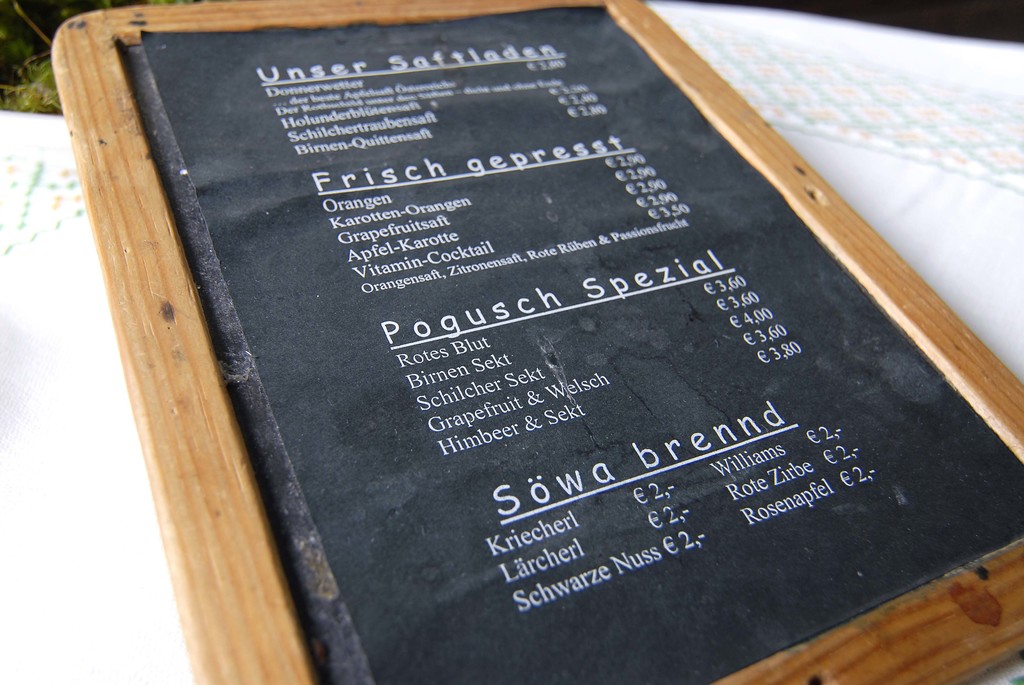 Unser Saftladen
Donnerwetter € 2,80
... der beste Apfelsaft Österreichs
Der
Holunderblütensaft
Schilchertraubensaft € 2,80
Birnen-Quittensaft € 2,80
Frisch gepresst
Orangen € 2,90
Karotten-Orangen € 2,90
Grapefruitsaft € 2,90
Apfel-Karotte € 2,90
Vitamin-Cocktail € 3,50
Orangensaft, Zitronensaft, Rote Rüben & Passionsfrucht
Pogusch Spezial
Rotes Blut € 3,60
Birnen Sekt € 3,60
Schilcher Sekt € 4,00
Grapefruit & Welsch € 3,60
Himbeer & Sekt € 3,80
Söwa brennd
Kriecherl € 2,- Williams € 2,-
Lärcherl € 2,- Rote Zirbe € 2,-
Schwarze Nuss € 2,- Rosenapfel € 2,-